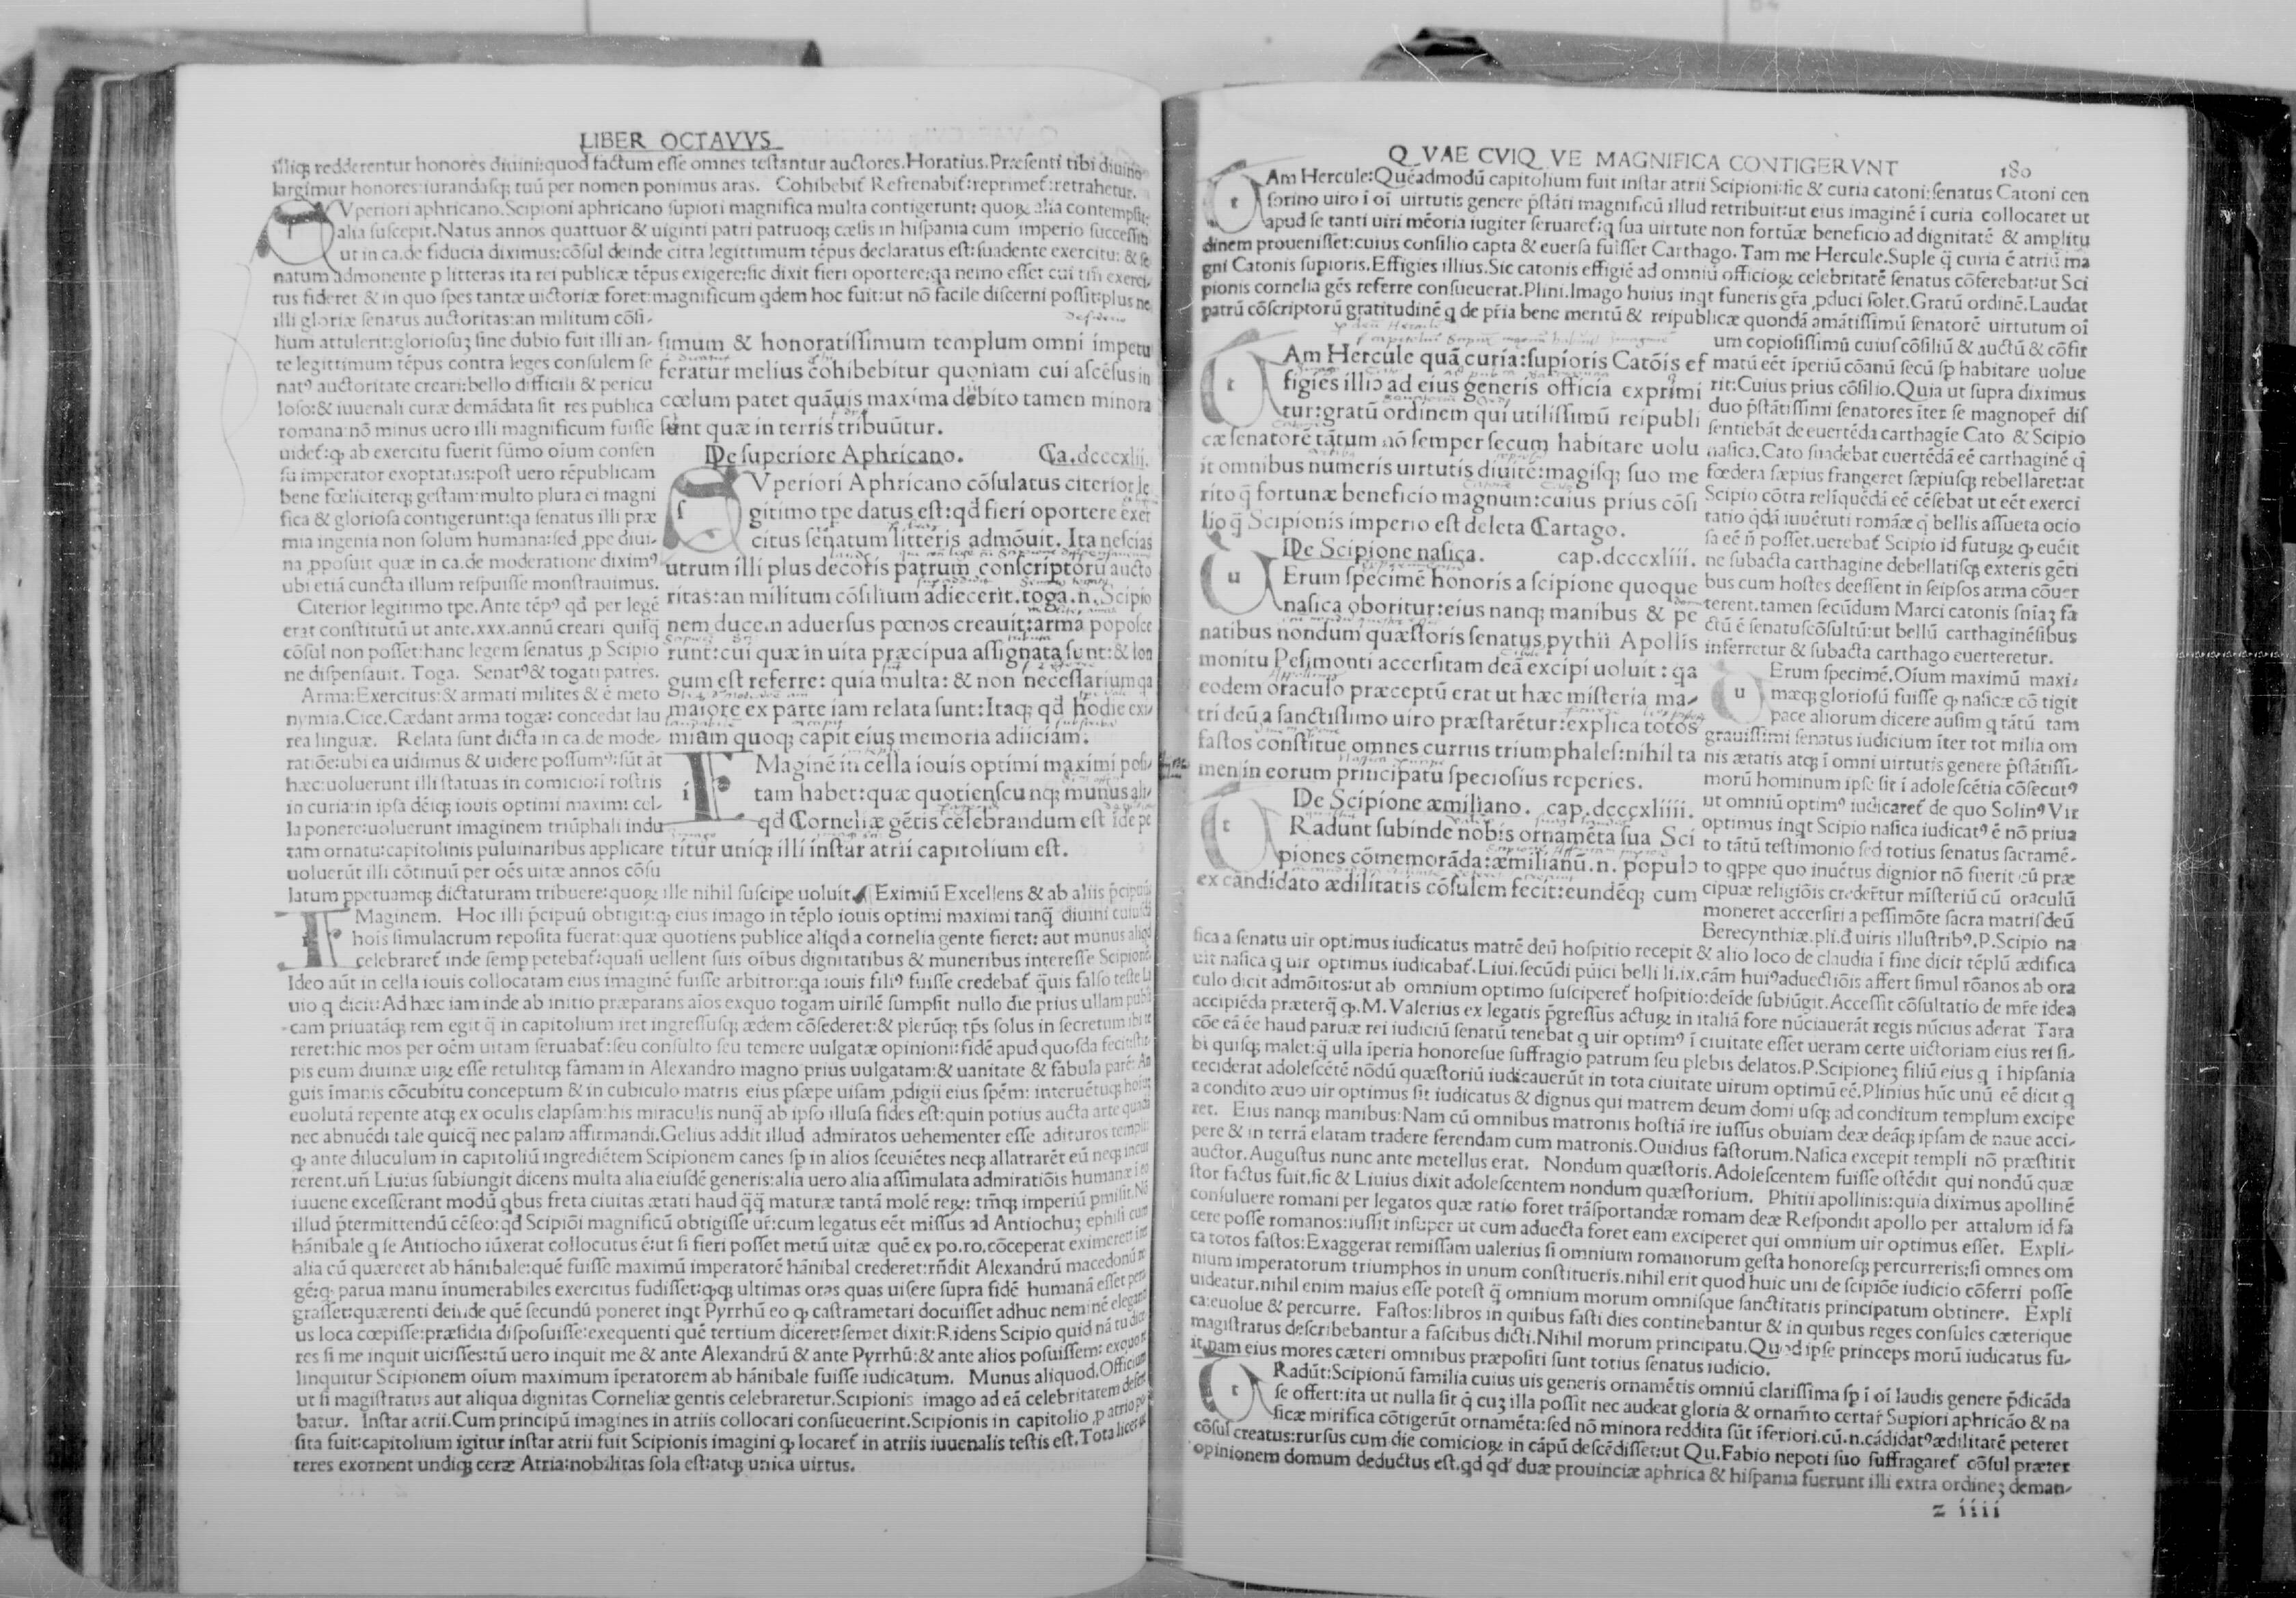 LIBER OCTAVVS
illiq; redderentur honores diuini:quod factum esse omnes testantur auctores.Horatius.Præsenti tibi diuino
largimur honores:iurandasq; tuũ per nomen ponimus aras. Cohibebit̃ Refrenabit̃:reprimet̃:retrahetur.
Vperiori aphricano.Scipioni aphricano supiori magnifica multa contigerunt: quoꝝ alia contempsit:
alia suscepit.Natus annos quattuor & uiginti patri patruoq; cæsis in hispania cum imperio successit:
ut in ca.de fiducia diximus:cõsul deinde citra legittimum tẽpus declaratus est:suadente exercitu: & se
natum admonente p litteras ita rei publicæ tẽpus exigere:sic dixit fieri oportere:qa nemo esset cui tm̃ exerci-
tus fideret & in quo spes tantæ uictoriæ foret:magnificum qdem hoc fuit:ut nõ facile discerni possit:plus ne
illi gloriæ senatus auctoritas:an militum cõsi-
lium attulerit:gloriosuꝫ sine dubio fuit illi an-
te legittimum tẽpus contra leges consulem se
natꝰ auctoritate creari:bello difficili & pericu
loso:& iuuenali curæ demãdata sit res publica
romana:nõ minus uero illi magnificum fuisse
uidet̃:ꝙ ab exercitu fuerit sũmo oĩum consen
sũ imperator exoptatus:post uero rẽpublicam
bene fœliciterq; gestam:multo plura ei magni
fica & gloriosa contigerunt:qa senatus illi præ
mia ingenia non solum humana:sed ,ppe diui-
na ,pposuit quæ in ca.de moderatione diximꝰ
ubi etiã cuncta illum respuisse monstrauimus.
Citerior legitimo tpe.Ante tẽpꝰ qd per legẽ
erat constitutũ ut ante.xxx.annũ creari quisq̃
cõsul non posset:hanc legem senatus ,p Scipio
ne dispensauit. Toga. Senatꝰ & togati patres.
Arma:Exercitus:& armati milites & ẽ meto
nymia.Cice.Cædant arma togæ: concedat lau
rea linguæ. Relata sunt dicta in ca.de mode-
ratiõe:ubi ea uidimus & uidere possumꝰ:sũt aũt
hæc:uoluerunt illi statuas in comicio:ĩ rostris
in curia:in ipsa dẽiq; iouis optimi maximi cel-
la ponere:uoluerunt imaginem triũphali indu
tam ornatu:capitolinis puluinaribus applicare
uoluerũt illi cõtinuũ per oẽs uitæ annos cõsu
latum ppetuamq; dictaturam tribuere:quoꝝ ille nihil suscipe uoluit. Eximiũ Excellens & ab aliis p̃cipuũ
simum & honoratissimum templum omni impetu
feratur melius cohibebitur quoniam cui ascẽsus in
cœlum patet quãuis maxima debito tamen minora
sunt quæ in terris tribuũtur.
De superiore Aphricano. Ca.dcccxlii.
Vperiori Aphricano cõsulatus citerior le
gitimo tpe datus est:qd fieri oportere exer
citus senatum litteris admõuit. Ita nescias
utrum illi plus decoris patrum conscriptorũ aucto
ritas:an militum cõsilium adiecerit.toga.n.Scipio
nem ducem aduersus pœnos creauit:arma poposce
runt:cui quæ in uita præcipua assignata sunt:& lon
gum est referre: quia multa: & non necessarium qa
maiore ex parte iam relata sunt:Itaq; qd hodie exi-
mium quoq; capit eius memoria adiiciam.
Maginẽ in cella iouis optimi maximi posi-
tam habet:quæ quotienscunq; munus ali-
qd Corneliæ gẽtis celebrandum est ĩde pe
titur uniq; illi instar atrii capitolium est.
Maginem. Hoc illi p̃cipuũ obtigit:ꝙ eius imago in tẽplo iouis optimi maximi tanq̃ diuini cuiusdã
hois simulacrum reposita fuerat:quæ quotiens publice aliqd a cornelia gente fieret: aut munus aliqd
celebraret̃ inde semp petebat̃:quasi uellent suis oibus dignitatibus & muneribus interesse Scipionẽ
Ideo aũt in cella iouis collocatam eius imaginẽ fuisse arbitror:qa iouis filiꝰ fuisse credebat̃ q̃uis falso teste Li
uio q dicit: Ad hæc iam inde ab initio præparans aĩos exquo togam uirilẽ sumpsit nullo die prius ullam publi
cam priuatãq; rem egit q̃ in capitolium iret ingressusq; ædem cõsederet:& plerũq; tp̃s solus in secretum ibi te
reret:hic mos per oẽm uitam seruabat̃:seu consulto seu temere uulgatæ opinioni:fidẽ apud quosdã fecit:stir
pis eum diuinæ uiꝝ esse retulitq; famam in Alexandro magno prius uulgatam:& uanitate & fabula parẽ: An
guis ĩmanis cõcubitu conceptum & in cubiculo matris eius psæpe uisam ,pdigii eius spẽm: interuẽtuq; hoĩuꝫ
euolutã repente atq; ex oculis elapsam:his miraculis nunq̃ ab ipso illusa fides est:quin potius aucta arte quadã
nec abnuẽdi tale quicq̃ nec palam affirmandi.Gelius addit illud admiratos uehementer esse adituros templi
ꝙ ante diluculum in capitoliũ ingrediẽtem Scipionem canes sp̃ in alios sceuiẽtes neq; allatrarẽt eũ neq; incur
rerent.uñ Liuius subiungit dicens multa alia eiusdẽ generis:alia uero alia assimulata admiratiõis humanæ ĩ eo
iuuene excesserant modũ qbus freta ciuitas ætati haud q̃q̃ maturæ tantã molẽ reꝝ: tm̃q; imperiũ pmisit.Nõ
illud p̃termittendũ cẽseo:qd Scipiõi magnificũ obtigisse ur̃:cum legatus eẽt missus ad Antiochuꝫ ephisi cum
hãnibale q se Antiocho iũxerat collocutus ẽ:ut si fieri posset metũ uitæ quẽ ex po.ro.cõceperat eximeret:
alia cũ quæreret ab hãnibale:quẽ fuisse maximũ imperatorẽ hãnibal crederet:rñdit Alexandrũ macedonũ
gẽ:ꝙ parua manu innumerabiles exercitus fudisset:ꝙq; ultimas oras quas uisere supra fidẽ humanã esset pera
grasset:quærenti deinde quẽ secundũ poneret inqt Pyrrhũ eo ꝙ castrametari docuisset adhuc neminẽ elegan
us loca cœpisse:præsidia disposuisse:exequenti quẽ tertium diceret:semet dixit:Ridens Scipio quid nã tu dice
res si me inquit uicisses:tũ uero inquit me & ante Alexandrũ & ante Pyrrhũ:& ante alios posuissem: exquo re
linquitur Scipionem oĩum maximum ĩperatorem ab hãnibale fuisse iudicatum. Munus aliquod.Officium
ut si magistratus aut aliqua dignitas Corneliæ gentis celebraretur.Scipionis imago ad eã celebritatem defere
batur. Instar atrii.Cum principũ imagines in atriis collocari consueuerint.Scipionis in capitolio ,p atrio po
sita fuit:capitolium igitur instar atrii fuit Scipionis imagini ꝙ locaret̃ in atriis iuuenalis testis est.Tota licet ue
teres exornent undiq; ceræ Atria:nobilitas sola est:atq; unica uirtus.
Q VAE CVIQ VE MAGNIFICA CONTIGERVNT 180
Am Hercule:Quẽadmodũ capitolium fuit instar atrii Scipioni:sic & curia catoni:senatus Catoni cen
sorino uiro ĩ oĩ uirtutis genere p̃stãti magnificũ illud retribuit:ut eius imaginẽ ĩ curia collocaret ut
apud se tanti uiri mẽoria iugiter seruaret̃:q sua uirtute non fortũæ beneficio ad dignitatẽ & amplitu
dinem prouenisset:cuius consilio capta & euersa fuisset Carthago. Tam me Hercule.Suple q̃ curia ẽ atriũ ma
gni Catonis supioris.Effigies illius.Sic catonis effigiẽ ad omniũ officioꝝ celebritatẽ senatus cõferebat:ut Sci
pionis cornelia gẽs referre consueuerat.Plini.Imago huius inqt funeris gr̃a ,pduci solet.Gratũ ordinẽ.Laudat
patrũ cõscriptorũ gratitudinẽ q de pr̃ia bene meritũ & reipublicæ quondã amãtissimũ senatorẽ uirtutum oĩ
um copiosissimũ cuius cõsiliũ & auctũ & cõfir
matũ eẽt ĩperiũ cõanũ secũ sp̃ habitare uolue
rit:Cuius prius cõsilio.Quia ut supra diximus
duo p̃stãtissimi senatores ĩter se magnoper̃ dis
sentiebãt de euertẽda carthagĩe Cato & Scipio
nasica.Cato suadebat euertẽdã eẽ carthaginẽ q̃
fœdera sæpius frangeret sæpiusq; rebellaret:at
Scipio cõtra relĩquẽdã eẽ cẽsebat ut eẽt exerci
tatio q̃dã iuuẽtuti romãæ q̃ bellis assueta ocio
sa eẽ ñ posset.uerebat̃ Scipio id futuꝝ ꝙ euẽit
ne subacta carthagine debellatisq; exteris gẽti
bus cum hostes deessent in seipsos arma cõuer
terent.tamen secũdum Marci catonis sñiaꝫ fa
ctũ ẽ senatuscõsultũ:ut bellũ carthaginẽsibus
inferretur & subacta carthago euerteretur.
Am Hercule quã curia:supioris Catõis ef
figies illiɔ ad eius generis officia exprimi
tur:gratũ ordinem qui utilissimũ reipubli
cæ senatorẽ tãtum nõ semper secum habitare uolu
it omnibus numeris uirtutis diuitẽ:magisq; suo me
rito q̃ fortunæ beneficio magnum:cuius prius cõsi
lio q̃ Scipionis imperio est deleta Cartago.
De Scipione nasica. cap.dcccxliii.
Erum specimẽ honoris a scipione quoque
nasica oboritur:eius nanq; manibus & pe
natibus nondum quæstoris senatus,pythii Apollis
monitu Pesimonti accersitam deã excipi uoluit: qa
eodem oraculo præceptũ erat ut hæc misteria ma-
tri deũ a sanctissimo uiro præstarẽtur:explica totos
fastos constitue omnes currus triumphales:nihil ta
men in eorum principatu speciosius reperies.
De Scipione æmiliano. cap.dcccxliiii.
Radunt subinde nobis ornamẽta sua Sci
piones cõmemorãda:æmilianũ.n. populo
ex candidato ædilitatis cõsulem fecit:eundẽq; cum
Erum specimẽ.Oĩum maximũ maxi-
mæq; gloriosũ fuisse ꝙ nasicæ cõtigit
pace aliorum dicere ausim q tãtũ tam
grauissimi senatus iudicium ĩter tot milia om
nis ætatis atq; ĩ omni uirtutis genere p̃stãtissi-
morũ hominum ipse sit ĩ adolescẽtia cõsecutꝰ
ut omniũ optimꝰ iudicaret̃ de quo Solinꝰ Vir
optimus inqt Scipio nasica iudicatꝰ ẽ nõ priua
to tãtũ testimonio sed totius senatus sacramẽ-
to qppe quo inuẽtus dignior nõ fuerit cũ præ
cipuæ religiõis creder̃tur misteriũ cũ oraculũ
moneret accersiri a pessimõte sacra matris deũ
Berecynthiæ.pli.đ uiris illustribꝰ.P.Scipio na
sica a senatu uir optimus iudicatus matrẽ deũ hospitio recepit & alio loco de claudia ĩ fine dicit tẽplũ ædifica
uit nasica q uir optimus iudicabat̃.Liui.secũdi pũici belli li.ix.cãm huiꝰaduectiõis affert simul rõanos ab ora
culo dicit admõitos:ut ab omnium optimo susciperet̃ hospitio:deide subiũgit.Accessit cõsultatio de mr̃e idea
accipiẽda præterq̃ ꝙ.M.Valerius ex legatis p̃gressus actuꝝ in italiã fore nũciauerãt regis nũcius aderat Tara
cõe eã eẽ haud paruæ rei iudiciũ senatũ tenebat q uir optimꝰ ĩ ciuitate esset ueram certe uictoriam eius rei si-
bi quisq; malet:q̃ ulla ĩperia honoresue suffragio patrum seu plebis delatos.P.Scipioneꝫ filiũ eius q ĩ hipsania
ceciderat adolescẽtẽ nõdũ quæstoriũ iudicauerũt in tota ciuitate uirum optimũ eẽ.Plinius hũc unũ eẽ dicit q
a condito æuo uir optimus sit iudicatus & dignus qui matrem deum domi usq; ad conditum templum excipe
ret. Eius nanq; manibus:Nam cũ omnibus matronis hostiã ire iussus obuiam deæ deãq; ipsam de naue acci-
pere & in terrã elatam tradere ferendam cum matronis.Ouidius fastorum.Nasica excepit templi nõ præstitit
auctor.Augustus nunc ante metellus erat. Nondum quæstoris.Adolescentem fuisse ostẽdit qui nondũ quæ
stor factus fuit.sic & Liuius dixit adolescentem nondum quæstorium. Phitii apollinis:quia diximus apollinẽ
consuluere romani per legatos quæ ratio foret trãsportandæ romam deæ Respondit apollo per attalum id fa
cere posse romanos:iussit insuper ut cum aduecta foret eam exciperet qui omnium uir optimus esset. Expli-
ca totos fastos:Exaggerat remissam ualerius si omnium romanorum gesta honoresq; percurreris:si omnes om
nium imperatorum triumphos in unum constitueris.nihil erit quod huic uni de scipiõe iudicio cõferri posse
uideatur.nihil enim maius esse potest q̃ omnium morum omnisque sanctitatis principatum obtinere. Expli
ca:euolue & percurre. Fastos:libros in quibus fasti dies continebantur & in quibus reges consules cæterique
magistratus describebantur a fascibus dicti.Nihil morum principatu.Quod ipse princeps morũ iudicatus fu-
it,nam eius mores cæteri omnibus præpositi sunt totius senatus iudicio.
Radũt:Scipionũ familia cuius uis generis ornamẽtis omniũ clarissima sp̃ ĩ oĩ laudis genere p̃dicãda
se offert:ita ut nulla sit q̃ cuꝫ illa possit nec audeat gloria & ornam̃to certar̃ Supiori aphricão & na
sicæ mirifica cõtigerũt ornamẽta:sed nõ minora reddita sũt ĩferiori.cũ.n.cãdidatꝰædilitatẽ peteret
cõsul creatus:rursus cum die comicioꝝ in cãpũ descẽdisset:ut Qu.Fabio nepoti suo suffragaret̃ cõsul præter
opinionem domum deductus est.qd qd' duæ prouinciæ aphrica & hispania fuerunt illi extra ordineꝫ deman-
z iiii